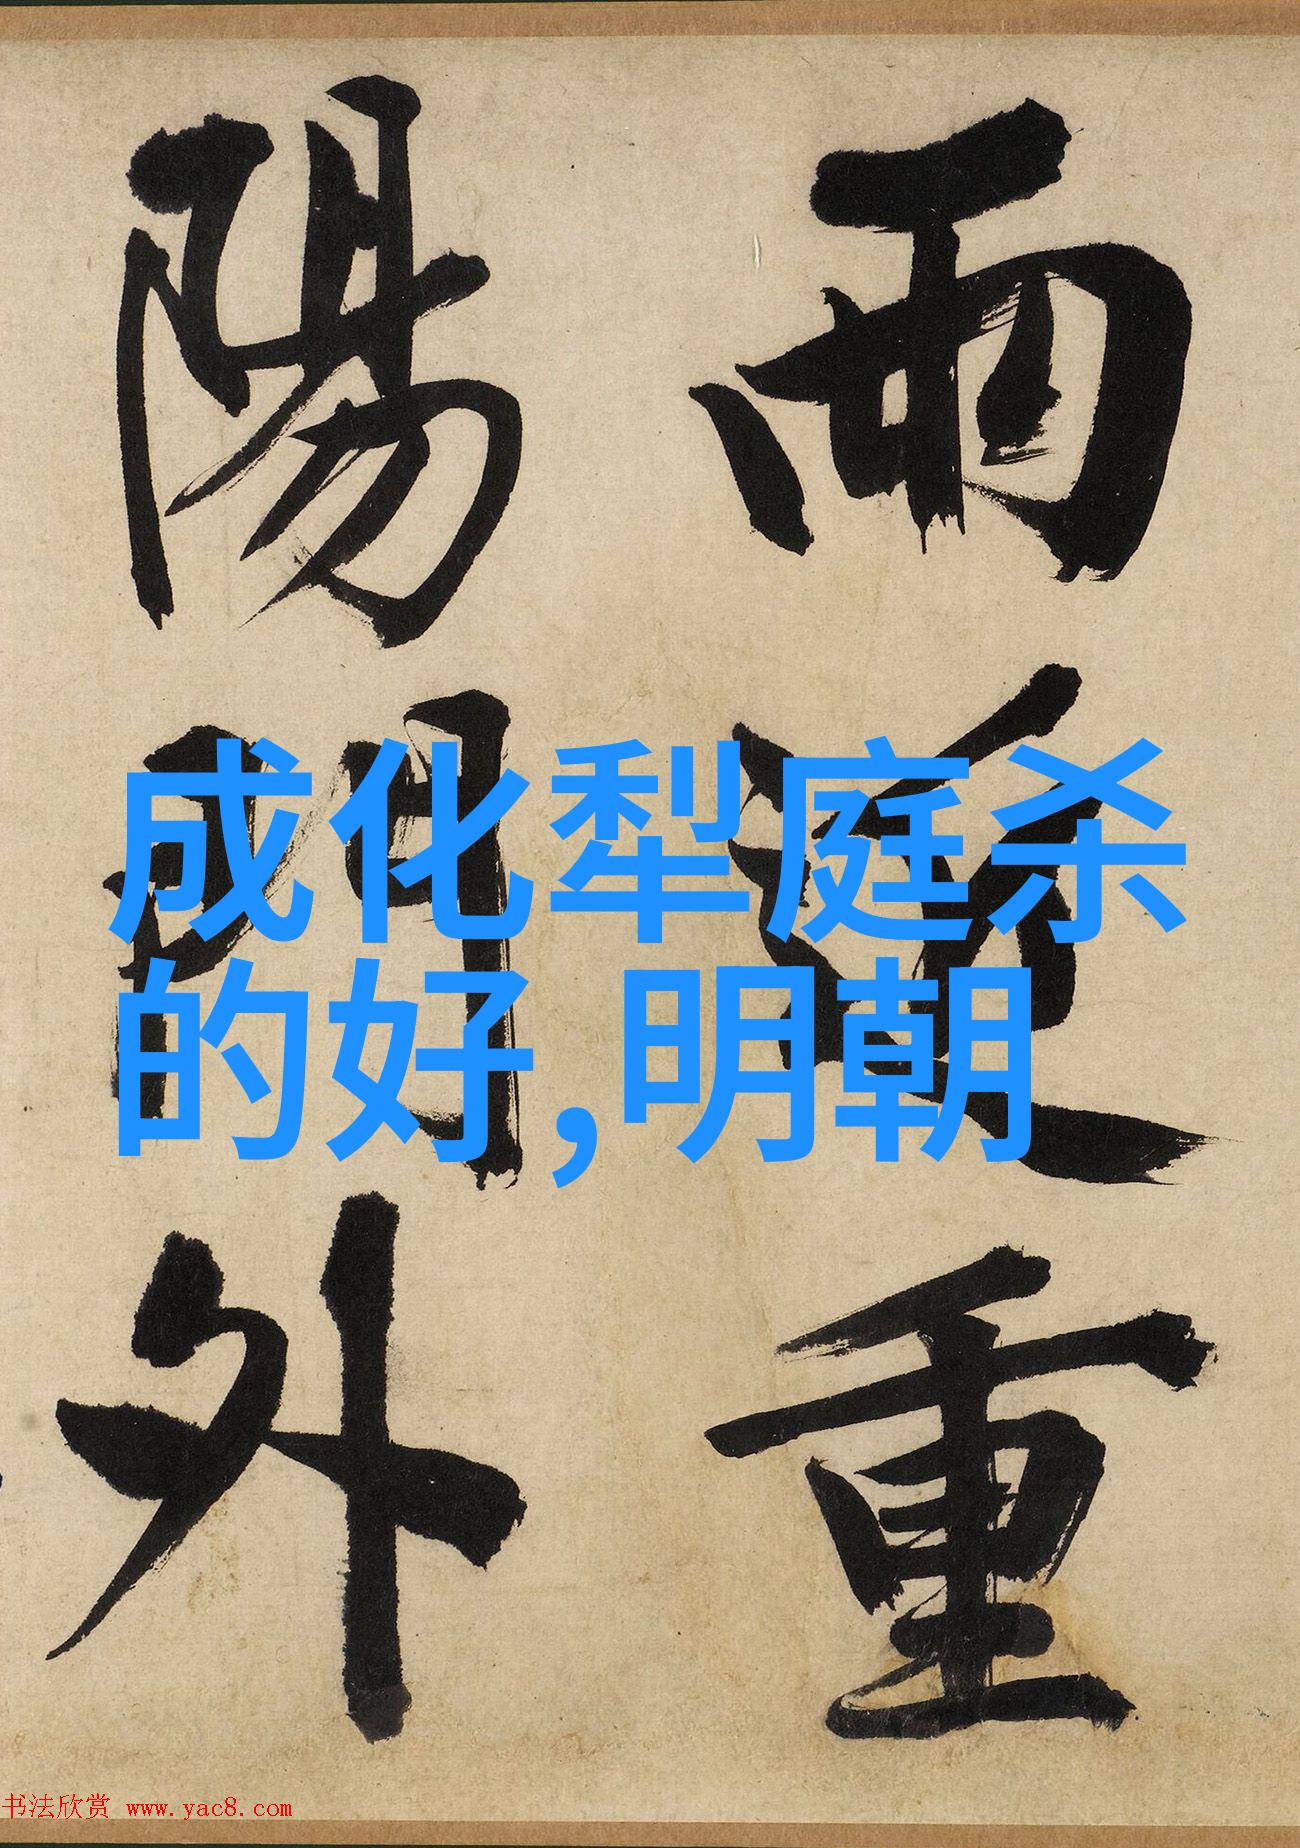 雨重
陽門外
成化犁庭杀
的好,明朝
书法欣赏 www.yac8.com